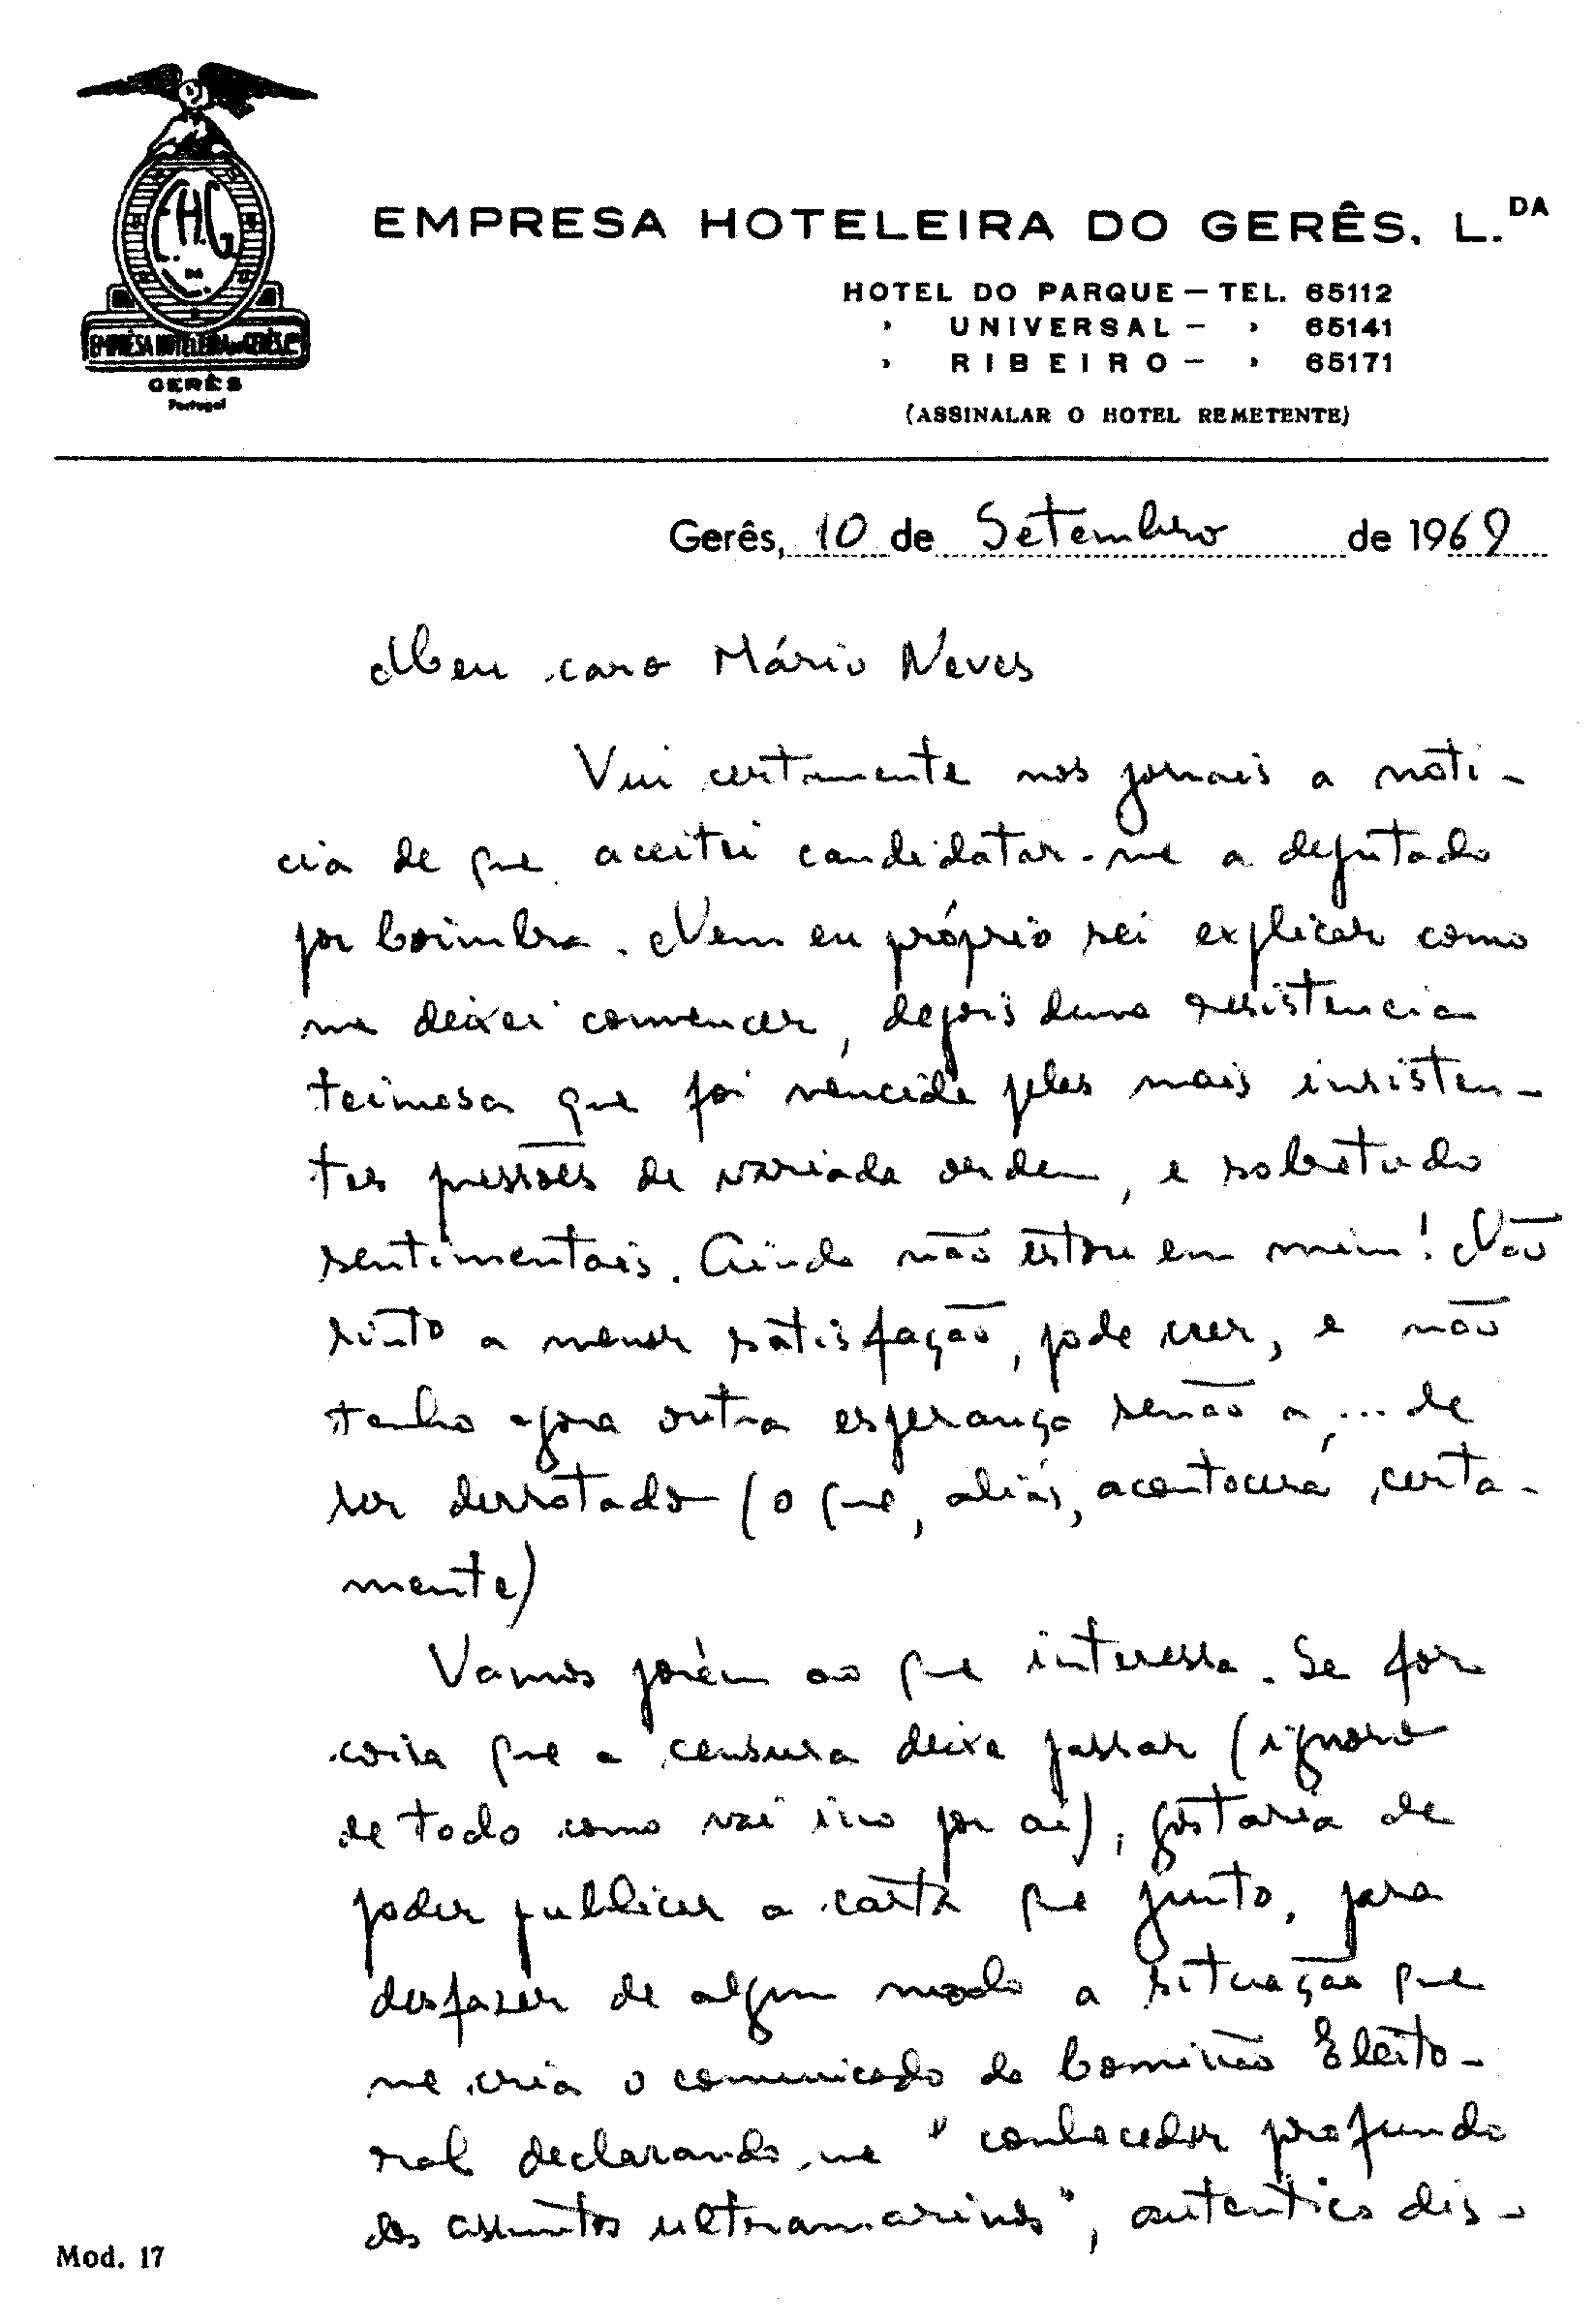 E.H.G.
L.DA
EMPRÊSA HOTELEIRA DO GERÊS, L.DA
GERÊS
Portugal
EMPRESA HOTELEIRA DO GERÊS, L.DA
HOTEL DO PARQUE — TEL. 65112
» UNIVERSAL — » 65141
» RIBEIRO — » 65171
(ASSINALAR O HOTEL REMETENTE)
Gerês, 10 de Setembro de 1969
Meu caro Mário Neves
Viu certamente nos jornais a notí-
cia de que aceitei candidatar-me a deputado
por Coimbra. Nem eu próprio sei explicar como
me deixei convencer, depois duma resistencia
teimosa que foi vencida pelas mais insisten-
tes pressões de variada ordem, e sobretudo
sentimentais. Ainda não estou em mim! Não
sinto a menor satisfação, pode crer, e não
tenho agora outra esperança senão a,... de
ser derrotado (o que, aliás, acontecerá certa-
mente)
Vamos porém ao que interessa. Se for
coisa que a censura deixe passar (ignoro
de todo como vai isso por aí), gostaria de
poder publicar a carta que junto, para
desfazer de algum modo a situação que
me cria o comunicado da Comissão Eleito-
ral declarando-me "conhecedor profundo
dos assuntos ultramarinos", autentico dis-
Mod. 17